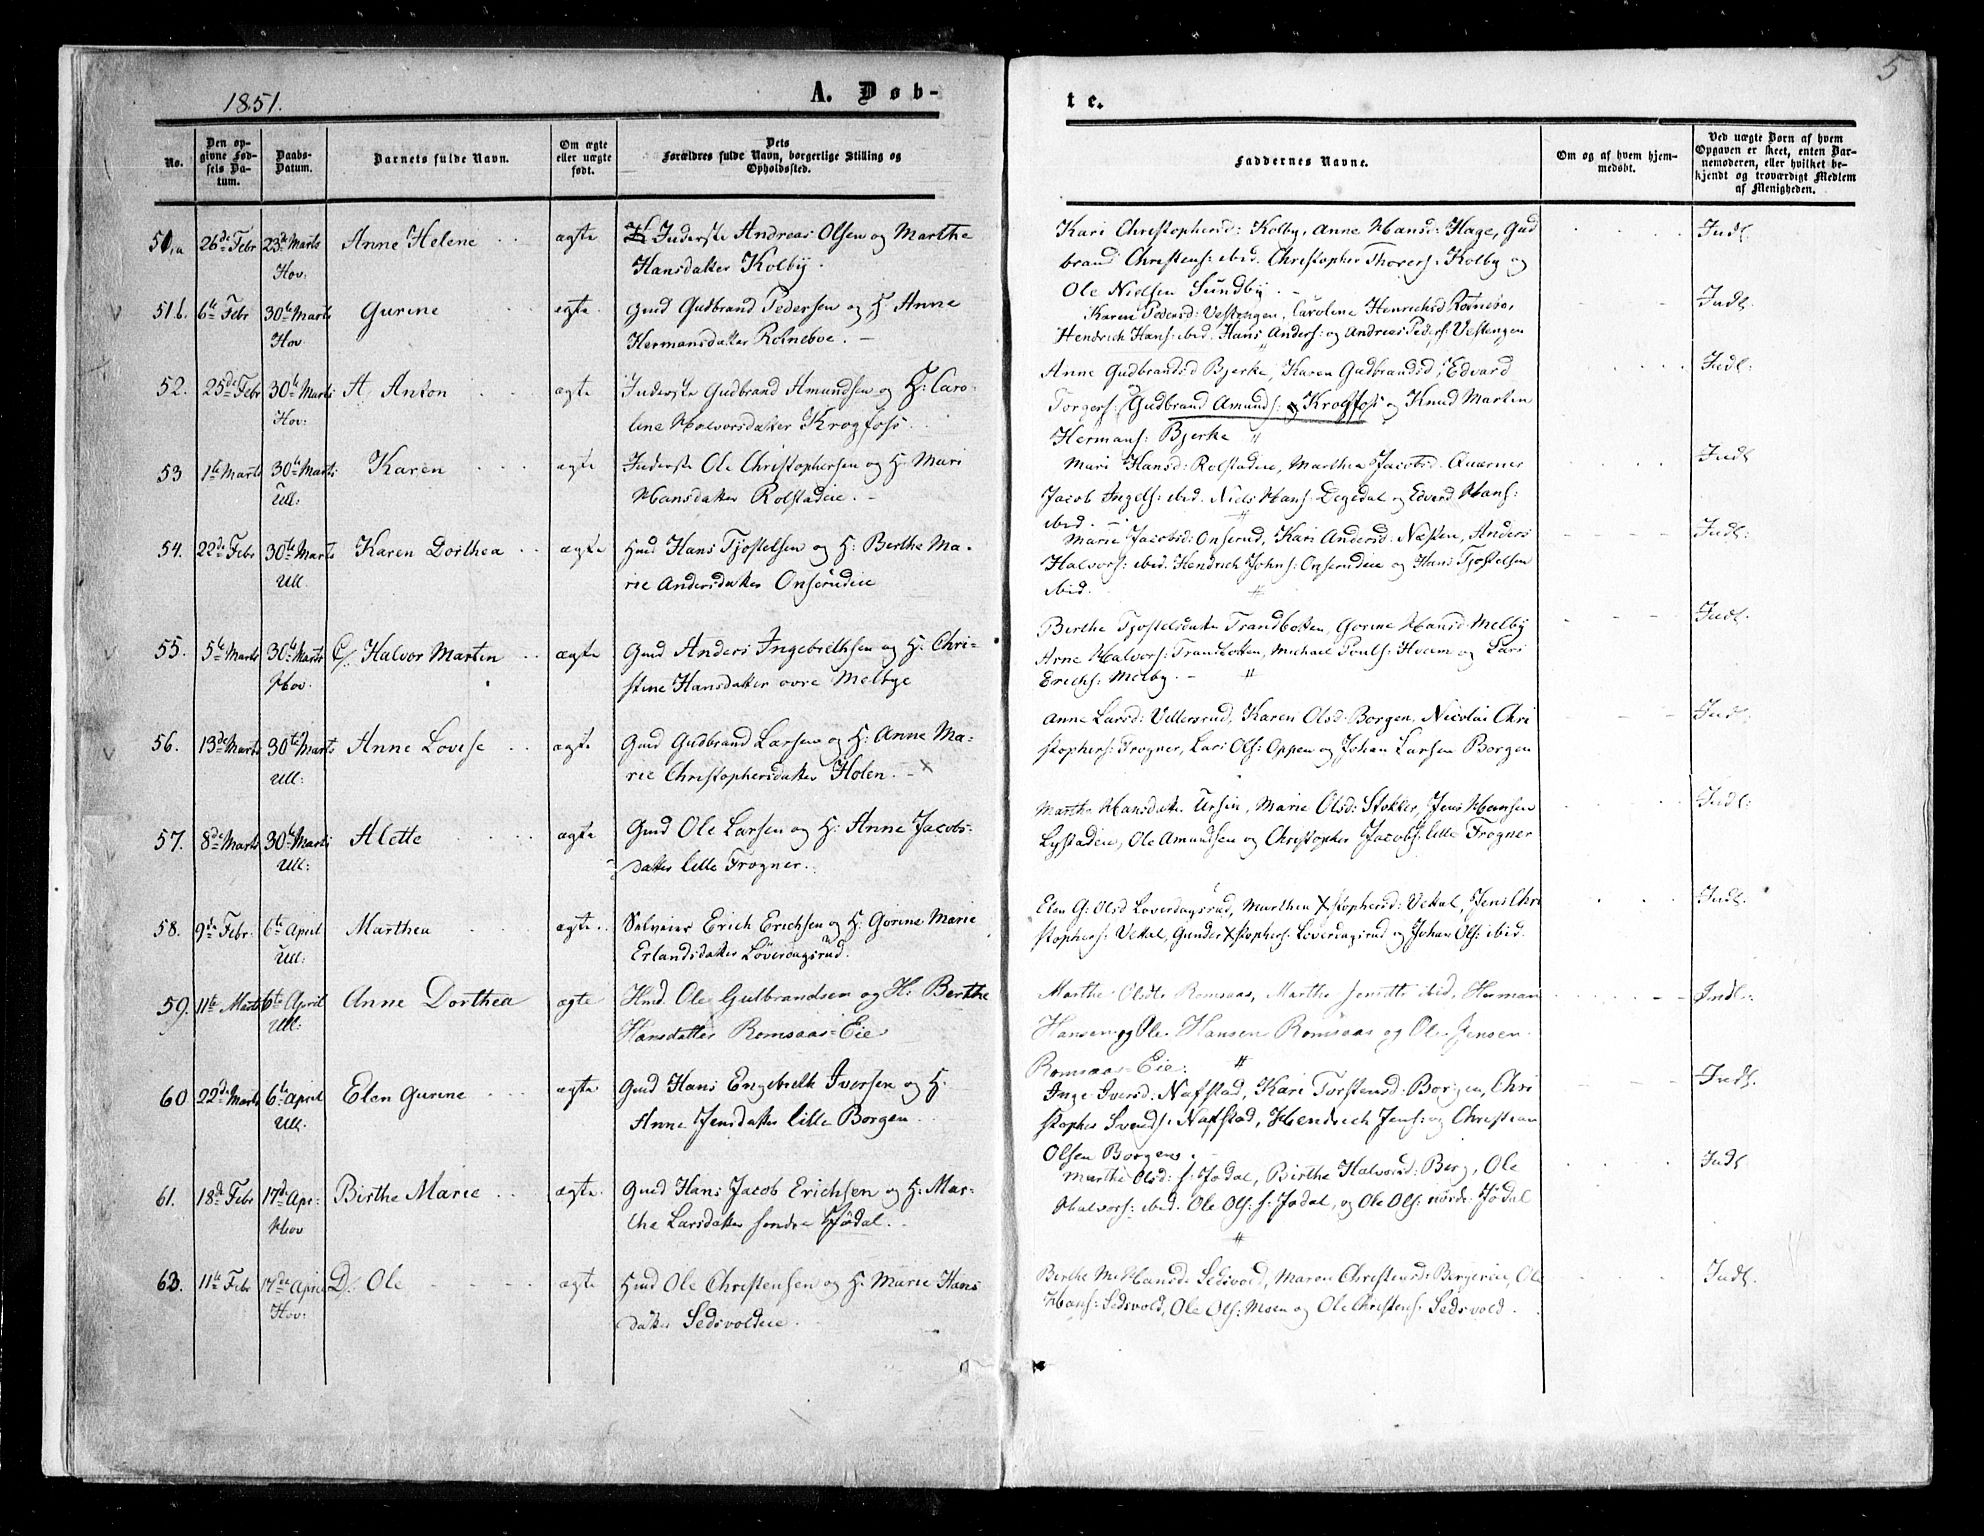 5
1851.
A. Døb-
te.
No.
Den op-
givne Fød-
sels Da-
tum.
Daabs-
Datum.
Barnets fulde Navn.
Om ægte
eller uægte
født.
Dets
Forældres fulde Navn, borgerlige Stilling og
Opholdssted.
Faddernes Navne.
Om og af hvem hjem-
medøbt.
Ved uægte Børn af hvem
Opgaven er skeet, enten Bar-
nemoderen, eller hvilket be-
kjendt og troværdigt Medlem
af Menigheden.
51,a 26de Febr 23de Marts Anne Helene ægte Inderste Andreas Olsen og Marthe
Hov: Hansdatter Kolby.
Kari Christophersd: Kolby, Anne Hansd: Hage, Gud
brand Christens: ibid. Christopher Thorers: Kolby og
Ole Nielsen Sundby. -
Indl.
51 b. 6te Febr 30te Marts Gurine egte. Gmd Gudbrand Pedersen og H. Anne
Hov Hermansdatter Rotneboe. -
Karen Pedersd: Vestengen, Caroline Henrichsd Rotnebo,
Hendrich Hans: ibid. Hans Anders: og Andreas Peders: Vestengen
Indl.
52. 25de Febr 30te Marts A, Anton ægte Inderste Gudbrand Amundsen og H: Caro-
Hov: line Halvorsdatter Krogfoss.
Anne Gudbrandsd Bjerke, Karen Gudbrandsd, Edvard
Torgers: Gudbrand Amunds: Krogfoss og Knud Martin
Hermans: Bjerke
Indl:
53 1te Marts 30te Marts: Karen ægte Inderste Ole Christophersen og H: Mari
Ull: Hansdatter Rolstadeie. -
Mari Hansd: Rolstadeie, Marthea Jacobsd. Quærner
Jacob Ingels: ibid. Niels Hans: Degedal og Edvard Hans:
ibid. -
Indl
54. 22de Febr 30te Marts Karen Dorthea ægte Hmd Hans Tjostelsen og H: Berthe Ma-
Ull. rie Andersdatter Onserudeie
Marie Jacobsd: Onserud, Kari Andersd: Næsten, Anders
Halvors: ibid. Hendrich Johns: Onserudeie og Hans Tjostelsen
ibid.
Indl:
55. 5te Marts 30te Marts C/. Halvor Martin ægte Gmd Anders Ingebrethsen og H: Chri-
Hov. stine Hansdatter øvre Melbye
Berthe Tjostelsdatter Trandbotten, Gorine Hansd Melby
Arne Halvors: Trandbotten, Michael Pouls: Hvam og Lars
Erichs: Melby. -
Indl.
56. 13de Marts 30te Marts Anne Lovise ægte Gmd Gudbrand Larsen og H: Anne Ma-
Ull: rie Christophersdatter Holen. -
Anne Larsd: Vellersrud, Karen Olsd Borgen, Nicolai Chri
stophers: Frogner, Lars Ols: Oppen og Johan Larsen Borgen
Indl.
57. 8de Marts 30te Marts Alette ægte Gmd Ole Larsen og H: Anne Jacobs-
Ull: datter lille Frogner.
Marthe Hansdatter Ursin, Marie Olsd: Stokker, Jens Hansen
Lystadeie, Ole Amundsen og Christopher Jacobs: lille Frogner
Indl:
58. 9de Febr. 6te April Marthea ægte Selveier Erich Erichsen og H: Gorine Marie
Ull: Erlandsdatter Løverdagsrud.
Elen G: Olsd Løverdagsrud, Marthea Xstophersd: Vektal, Jens Chri
stophers: Vektal, Gunder Xstophers: Løverdagsrud og Johan Ols: ibid.
Indl.
59. 11te Marts 6te April Anne Dorthea ægte Hmd. Ole Gulbrandsen og H: Berthe
Ull: Hansdatter Romsaas-Eie
Marthe Olsdtr Romsaas, Marthe Jensdtr ibid, Herman
Hansen og Ole Hansen Romsaas og Ole Jensen
Romsaas-Eie.
Indl:
60 22de Marts 6te April Elen Gurine ægte Gmd Hans Engebreth Iversen og H.
Ull: Anne Jensdatter lille Borgen
Inge Iversd: Nafstad, Kari Torstensd: Borgen, Chri
stopher Svends: Nafstad, Hendrich Jens: og Christian
Olsen Borgen.
Indl.
61. 18de Febr 17de Apr: Birthe Marie ægte. Gmd Hans Jacob Erichsen og H: Mar-
Hov the Larsdatter søndre Hødal.
Marthe Olsd: s: Hødal, Birthe Halvorsd: Berg, Ole
Halvors: ibid. Ole Ols: s. Hødal, og Ole Ols: nordr. Hødal
Indl
62. 11te Febr 17de April D/. Ole ægte Hmd Ole Christensen og H: Marie Hans
Hov: datter Sedsvoldeie
Berthe M: Hansd: Sedsvold, Maren Christensd: Bergerie, Ole
Hans: Sedsvold, Ole Ols: Moen og Ole Christens: Sedsvold.
Indl.